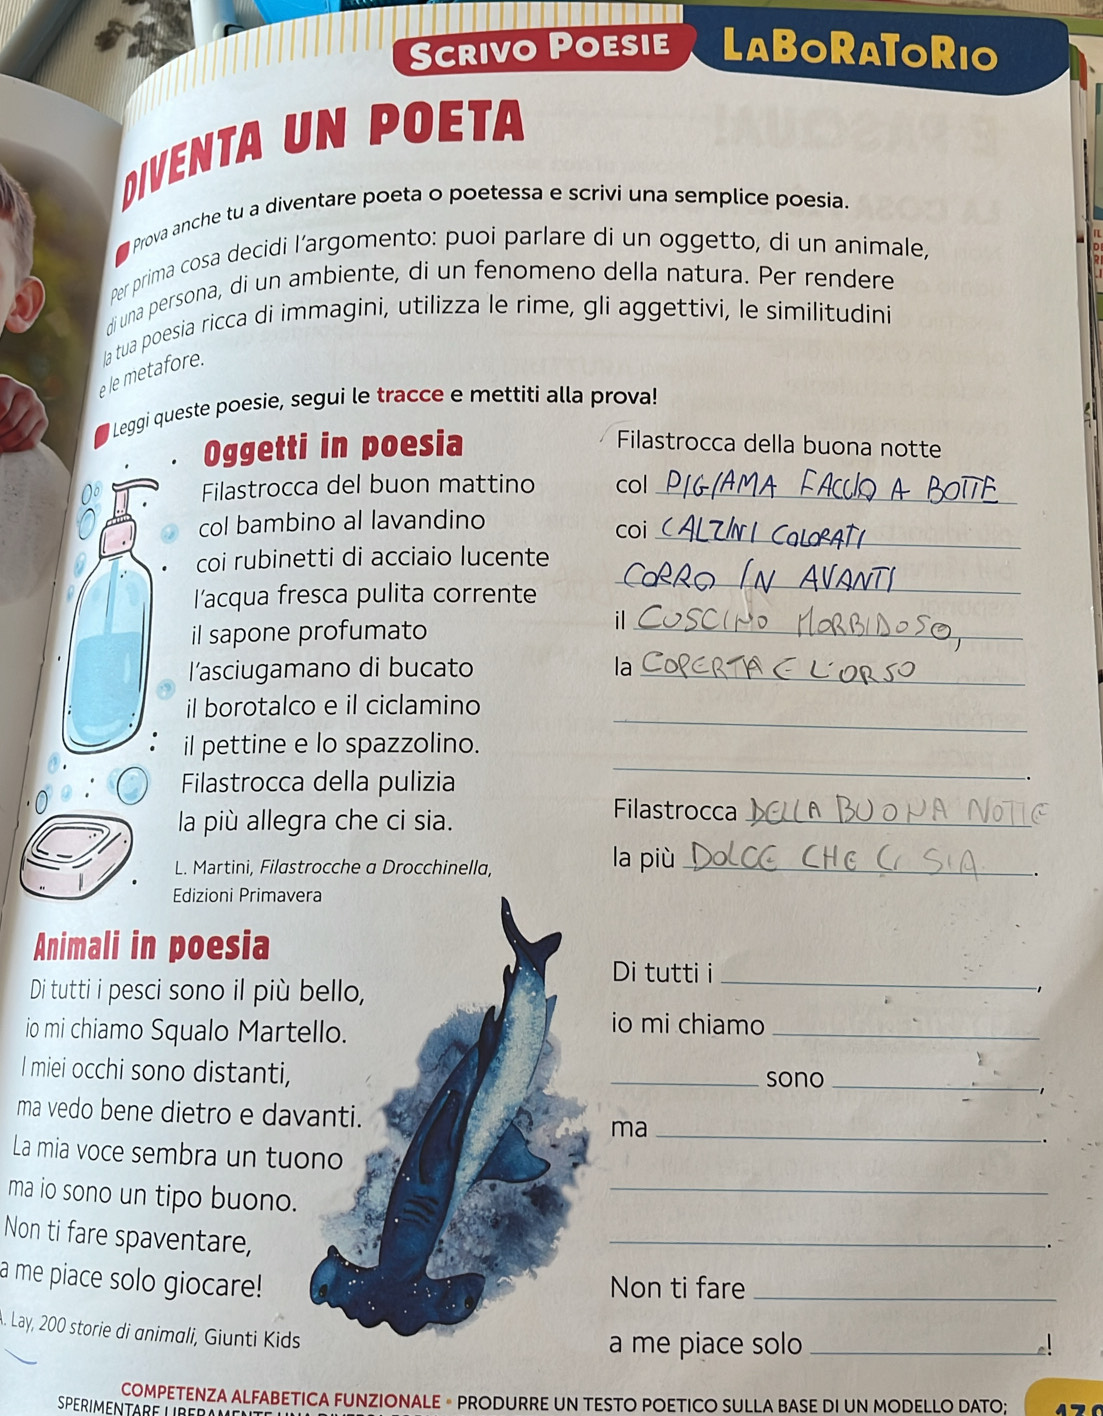 SCRIVO POESIE
LABORATORIO
DIVENTA UN POETA
Prova anche tu a diventare poeta o poetessa e scrivi una semplice poesia.
Per prima cosa decidi l'argomento: puoi parlare di un oggetto, di un animale,
di una persona, di un ambiente, di un fenomeno della natura. Per rendere
la tua poesia ricca di immagini, utilizza le rime, gli aggettivi, le similitudini
e le metafore.
Leggi queste poesie, segui le tracce e mettiti alla prova!
Oggetti in poesia
Filastrocca del buon mattino
col bambino al lavandino
coi rubinetti di acciaio lucente
l'acqua fresca pulita corrente
il sapone profumato
l'asciugamano di bucato
il borotalco e il ciclamino
il pettine e lo spazzolino.
Filastrocca della pulizia
la più allegra che ci sia.
L. Martini, Filastrocche a Drocchinella,
Edizioni Primavera
Filastrocca della buona notte
col PIGIAMA FACCIO A BOTTE
coi CALZINI COLORATI
CORRO IN AVANTI
il CUSCINO MORBIDOSO,
la COPERTA E L'ORSO
.
Filastrocca DELLA BUONA NOTTE
la più DOLCE CHE CI SIA.
Animali in poesia
Di tutti i pesci sono il più bello,
io mi chiamo Squalo Martello.
I miei occhi sono distanti,
ma vedo bene dietro e davanti.
La mia voce sembra un tuono
ma io sono un tipo buono.
Non ti fare spaventare,
a me piace solo giocare!
A. Lay, 200 storie di animali, Giunti Kids
Di tutti i ,
io mi chiamo
sono ,
ma .
.
Non ti fare
a me piace solo !
COMPETENZA ALFABETICA FUNZIONALE • PRODURRE UN TESTO POETICO SULLA BASE DI UN MODELLO DATO;
SPERIMENTARE